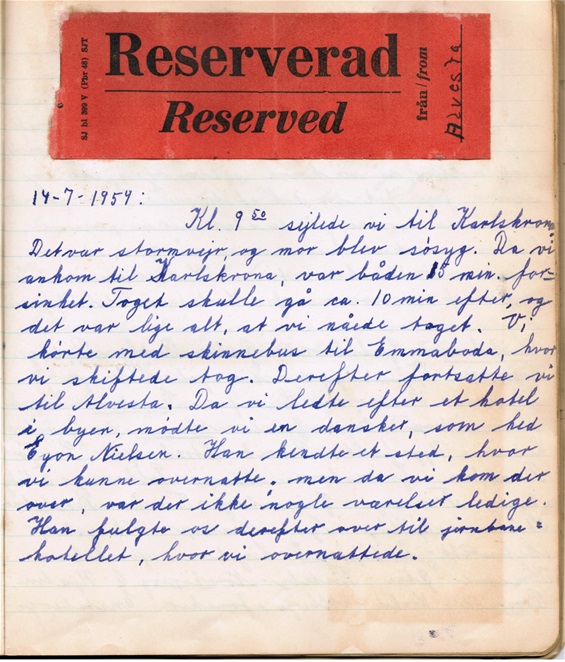 Reserverad
Reserved
SJ bl 300 V (Pbr 48) SJT
från / from
Alvesta
14-7-1959:
Kl. 9 50 sejlede vi til Karlskrona
Det var stormvejr, og mor blev søsyg. Da vi
ankom til Karlskrona, var båden 15 min. for-
sinket. Toget skulle gå ca. 10 min efter, og
det var lige alt, at vi nåede toget. Vi
kørte med skinnebus til Emmaboda, hvor
vi skiftede tog. Derefter fortsatte vi
til Alvesta. Da vi ledte efter et hotel
i byen, mødte vi en dansker, som hed
Egon Nielsen. Han kendte et sted, hvor
vi kunne overnatte, men da vi kom der
over, var der ikke nogle værelser ledige.
Han fulgte os derefter over til jernbane=
hotellet, hvor vi overnattede.